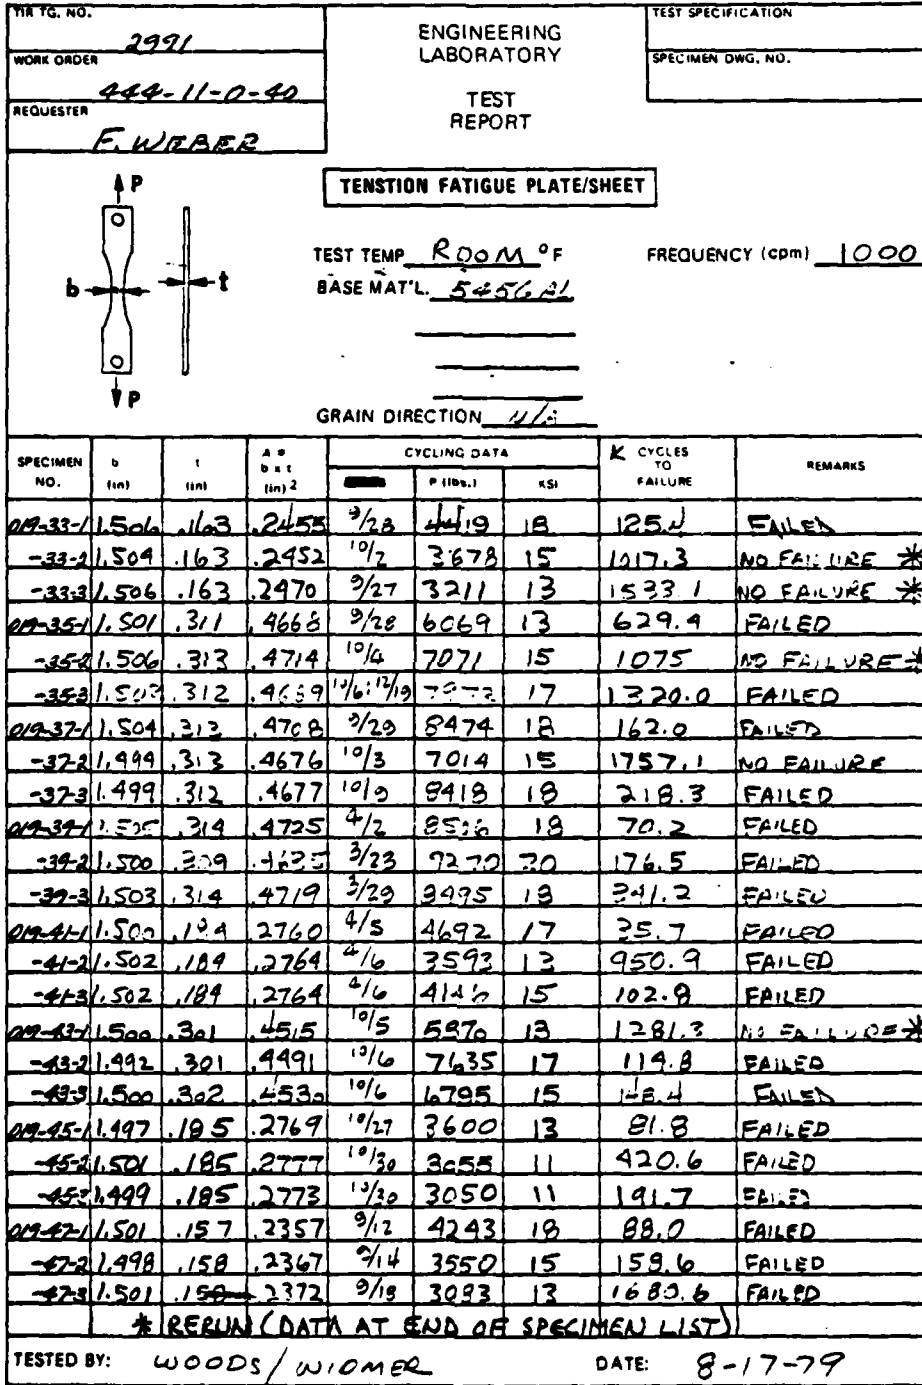 TIR TG. NO.
2991
WORK ORDER
444-11-0-40
REQUESTER
F. WEBER
ENGINEERING
LABORATORY
TEST
REPORT
TEST SPECIFICATION
SPECIMEN DWG. NO.
TENSTION FATIGUE PLATE/SHEET
P
b
t
P
TEST TEMP ROOM °F
FREQUENCY (cpm) 1000
BASE MAT'L. 5456 Al
GRAIN DIRECTION N/A
SPECIMEN NO. b (in) t (in) A = b x t (in)2 CYCLING DATA P (lbs.) KSI K CYCLES TO FAILURE REMARKS
019-33-1 1.506 .163 .2455 9/28 4419 18 125.4 FAILED
-33-2 1.504 .163 .2452 10/2 3678 15 1017.3 NO FAILURE *
-33-3 1.506 .163 .2470 9/27 3211 13 1533.1 NO FAILURE *
019-35-1 1.501 .311 .4668 9/28 6069 13 629.4 FAILED
-35-2 1.506 .313 .4714 10/4 7071 15 1075 NO FAILURE *
-35-3 1.503 .312 17 1320.0 FAILED
019-37-1 1.504 .313 .4708 9/29 8474 18 162.0 FAILED
-37-2 1.499 .313 .4676 10/3 7014 15 1757.1 NO FAILURE
-37-3 1.499 .312 .4677 10/9 8418 18 218.3 FAILED
019-39-1 1.505 .314 .4725 4/2 18 70.2 FAILED
-39-2 1.500 .309 .4635 3/23 9270 20 176.5 FAILED
-39-3 1.503 .314 .4719 3/29 8495 18 241.2 FAILED
019-41-1 1.500 .184 .2760 4/5 4692 17 35.7 FAILED
-41-2 1.502 .184 .2764 4/6 3593 13 950.9 FAILED
-41-3 1.502 .184 .2764 4/6 4146 15 102.8 FAILED
019-43-1 1.500 .301 .4515 10/5 5870 13 1281.3 NO FAILURE *
-43-2 1.492 .301 .4491 10/6 7635 17 114.8 FAILED
-43-3 1.500 .302 .4530 10/6 6795 15 148.4 FAILED
019-45-1 1.497 .185 .2769 10/27 3600 13 81.8 FAILED
-45-2 1.501 .185 .2777 10/30 3055 11 420.6 FAILED
-45-3 1.499 .185 .2773 10/30 3050 11 191.7 FAILED
019-47-1 1.501 .157 .2357 9/12 4243 18 88.0 FAILED
-47-2 1.498 .158 .2367 9/14 3550 15 159.6 FAILED
-47-3 1.501 .158 .2372 9/18 3083 13 1680.6 FAILED
* RERUN (DATA AT END OF SPECIMEN LIST)
TESTED BY: WOODS / WIDMER
DATE: 8-17-79